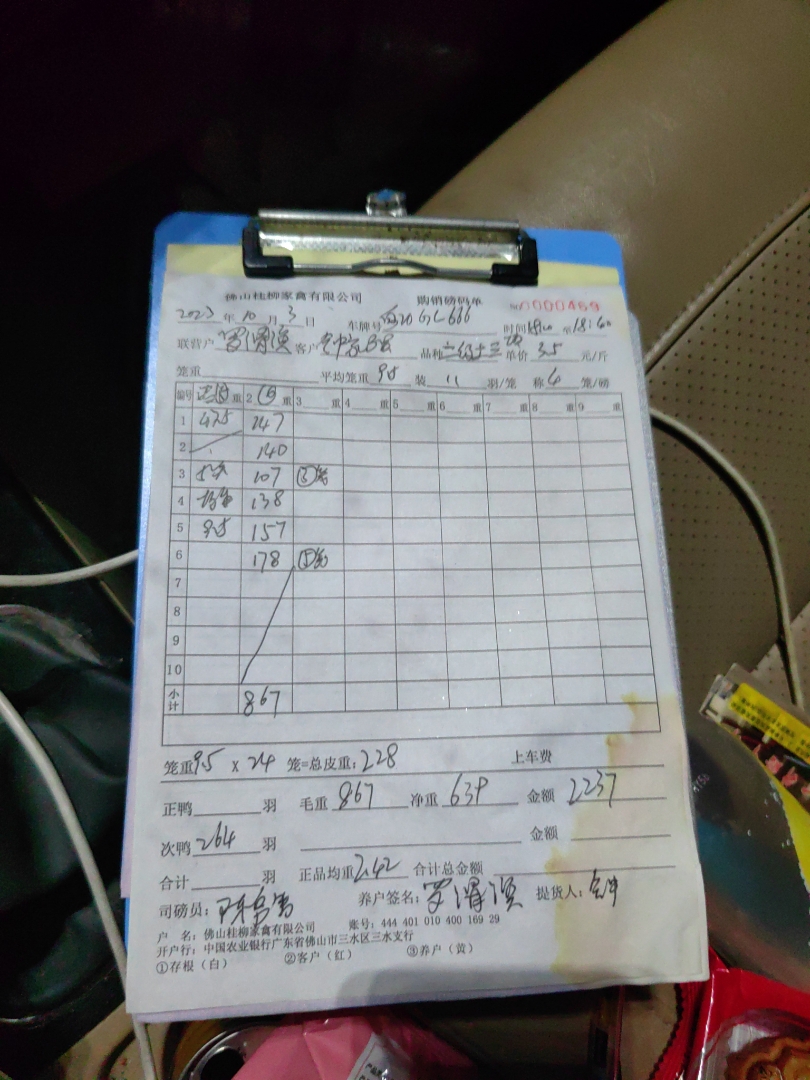 佛山桂柳家禽有限公司 购销磅码单 № 0000469
2023 年 10 月 3 日 车牌号 时间 至 18:60
联营户 罗渭滨 客户 品种 单价 3.5 元/斤
笼重 平均笼重 9.5 装 11 羽/笼 称 4 笼/磅
编号 重 2 重 3 重 4 重 5 重 6 重 7 重 8 重 9 重
1 47.5 147
2 140
3 107 ③笼
4 138
5 9.5 157
6 178 ⑤笼
7
8
9
10
小计 867
笼重 9.5 x 24 笼=总皮重: 228 上车费
正鸭 羽 毛重 867 净重 639 金额 2237
次鸭 264 羽 金额
合计 羽 正品均重 2.42 合计总金额
司磅员: 养户签名: 罗渭滨 提货人:
户 名: 佛山桂柳家禽有限公司 账号: 444 401 010 400 169 29
开户行: 中国农业银行广东省佛山市三水区三水支行
①存根(白) ②客户(红) ③养户(黄)